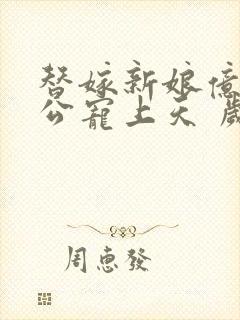 替嫁新娘億
公寵上天 歲
周惠發